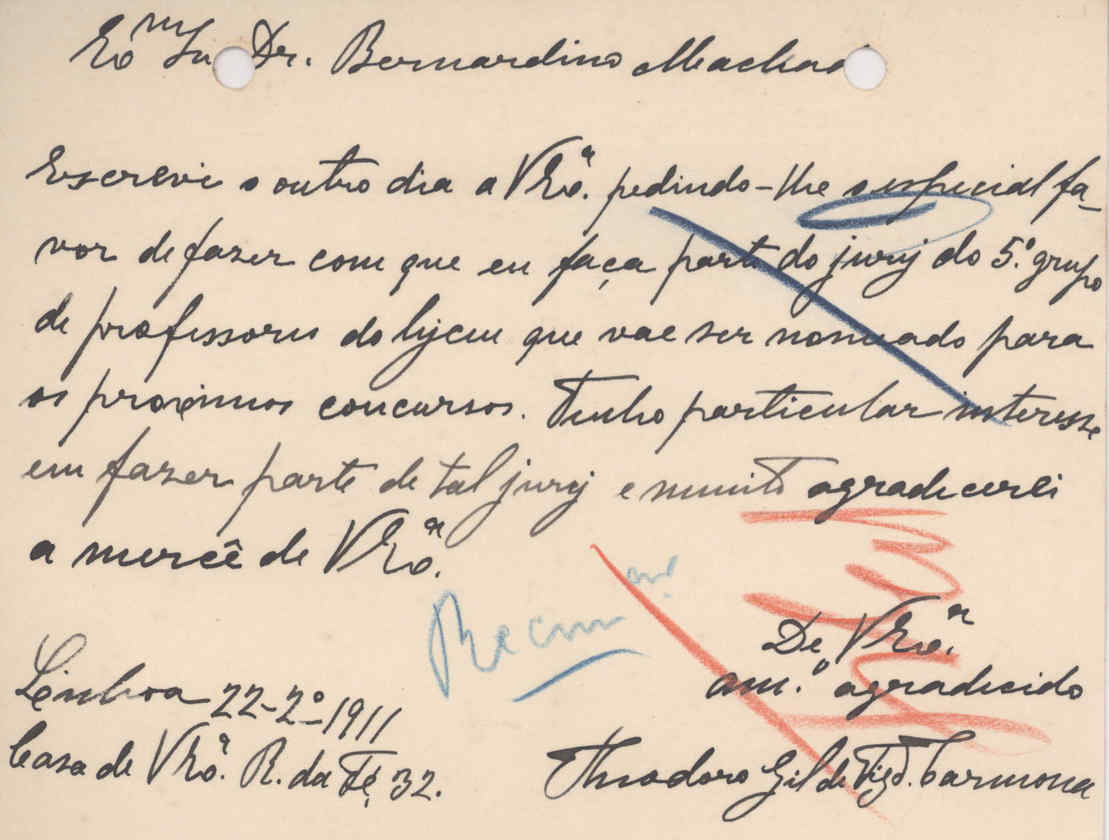 Exmo Snr. Dr. Bernardino Machado
Escrevi o outro dia a V Exa. pedindo-lhe o especial fa-
vor de fazer com que eu faça parte do jury do 5.º grupo
de professores do lyceu que vae ser nomeado para
os proximos concursos. Tenho particular interesse
em fazer parte de tal jury e muito agradecerei
a mercê de V Exa.
Recom
De V Exa.
am.º agradecido
Lisboa 22-2º-1911
Casa de V Exa. R. da Fé, 32.
Theodoro Gil de Figd. Carmona